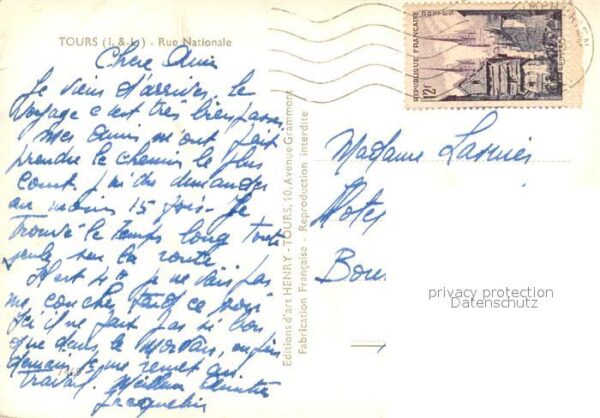 TOURS (I. & L.) - Rue Nationale
Chère Amie
Je viens d'arriver. le
voyage c'est très bien passé
mes amis m'ont fait
prendre le chemin le plus
court. j'ai du demander
au moins 15 fois. Je
trouve le temps long toute
seule sur la route
Il est 4 h je ne vais pas
me coucher tard ce soir
Ici il ne fait pas si bon
que dans le Morvan, enfin
demain je me remet au
travail. Meilleur
Jacqueline
Editions d'art HENRY - TOURS, 10, Avenue Grammont
Fabrication Française - Reproduction interdite
REPUBLIQUE FRANÇAISE
12F
Madame
Hotel
Bou
privacy protection
Datenschutz